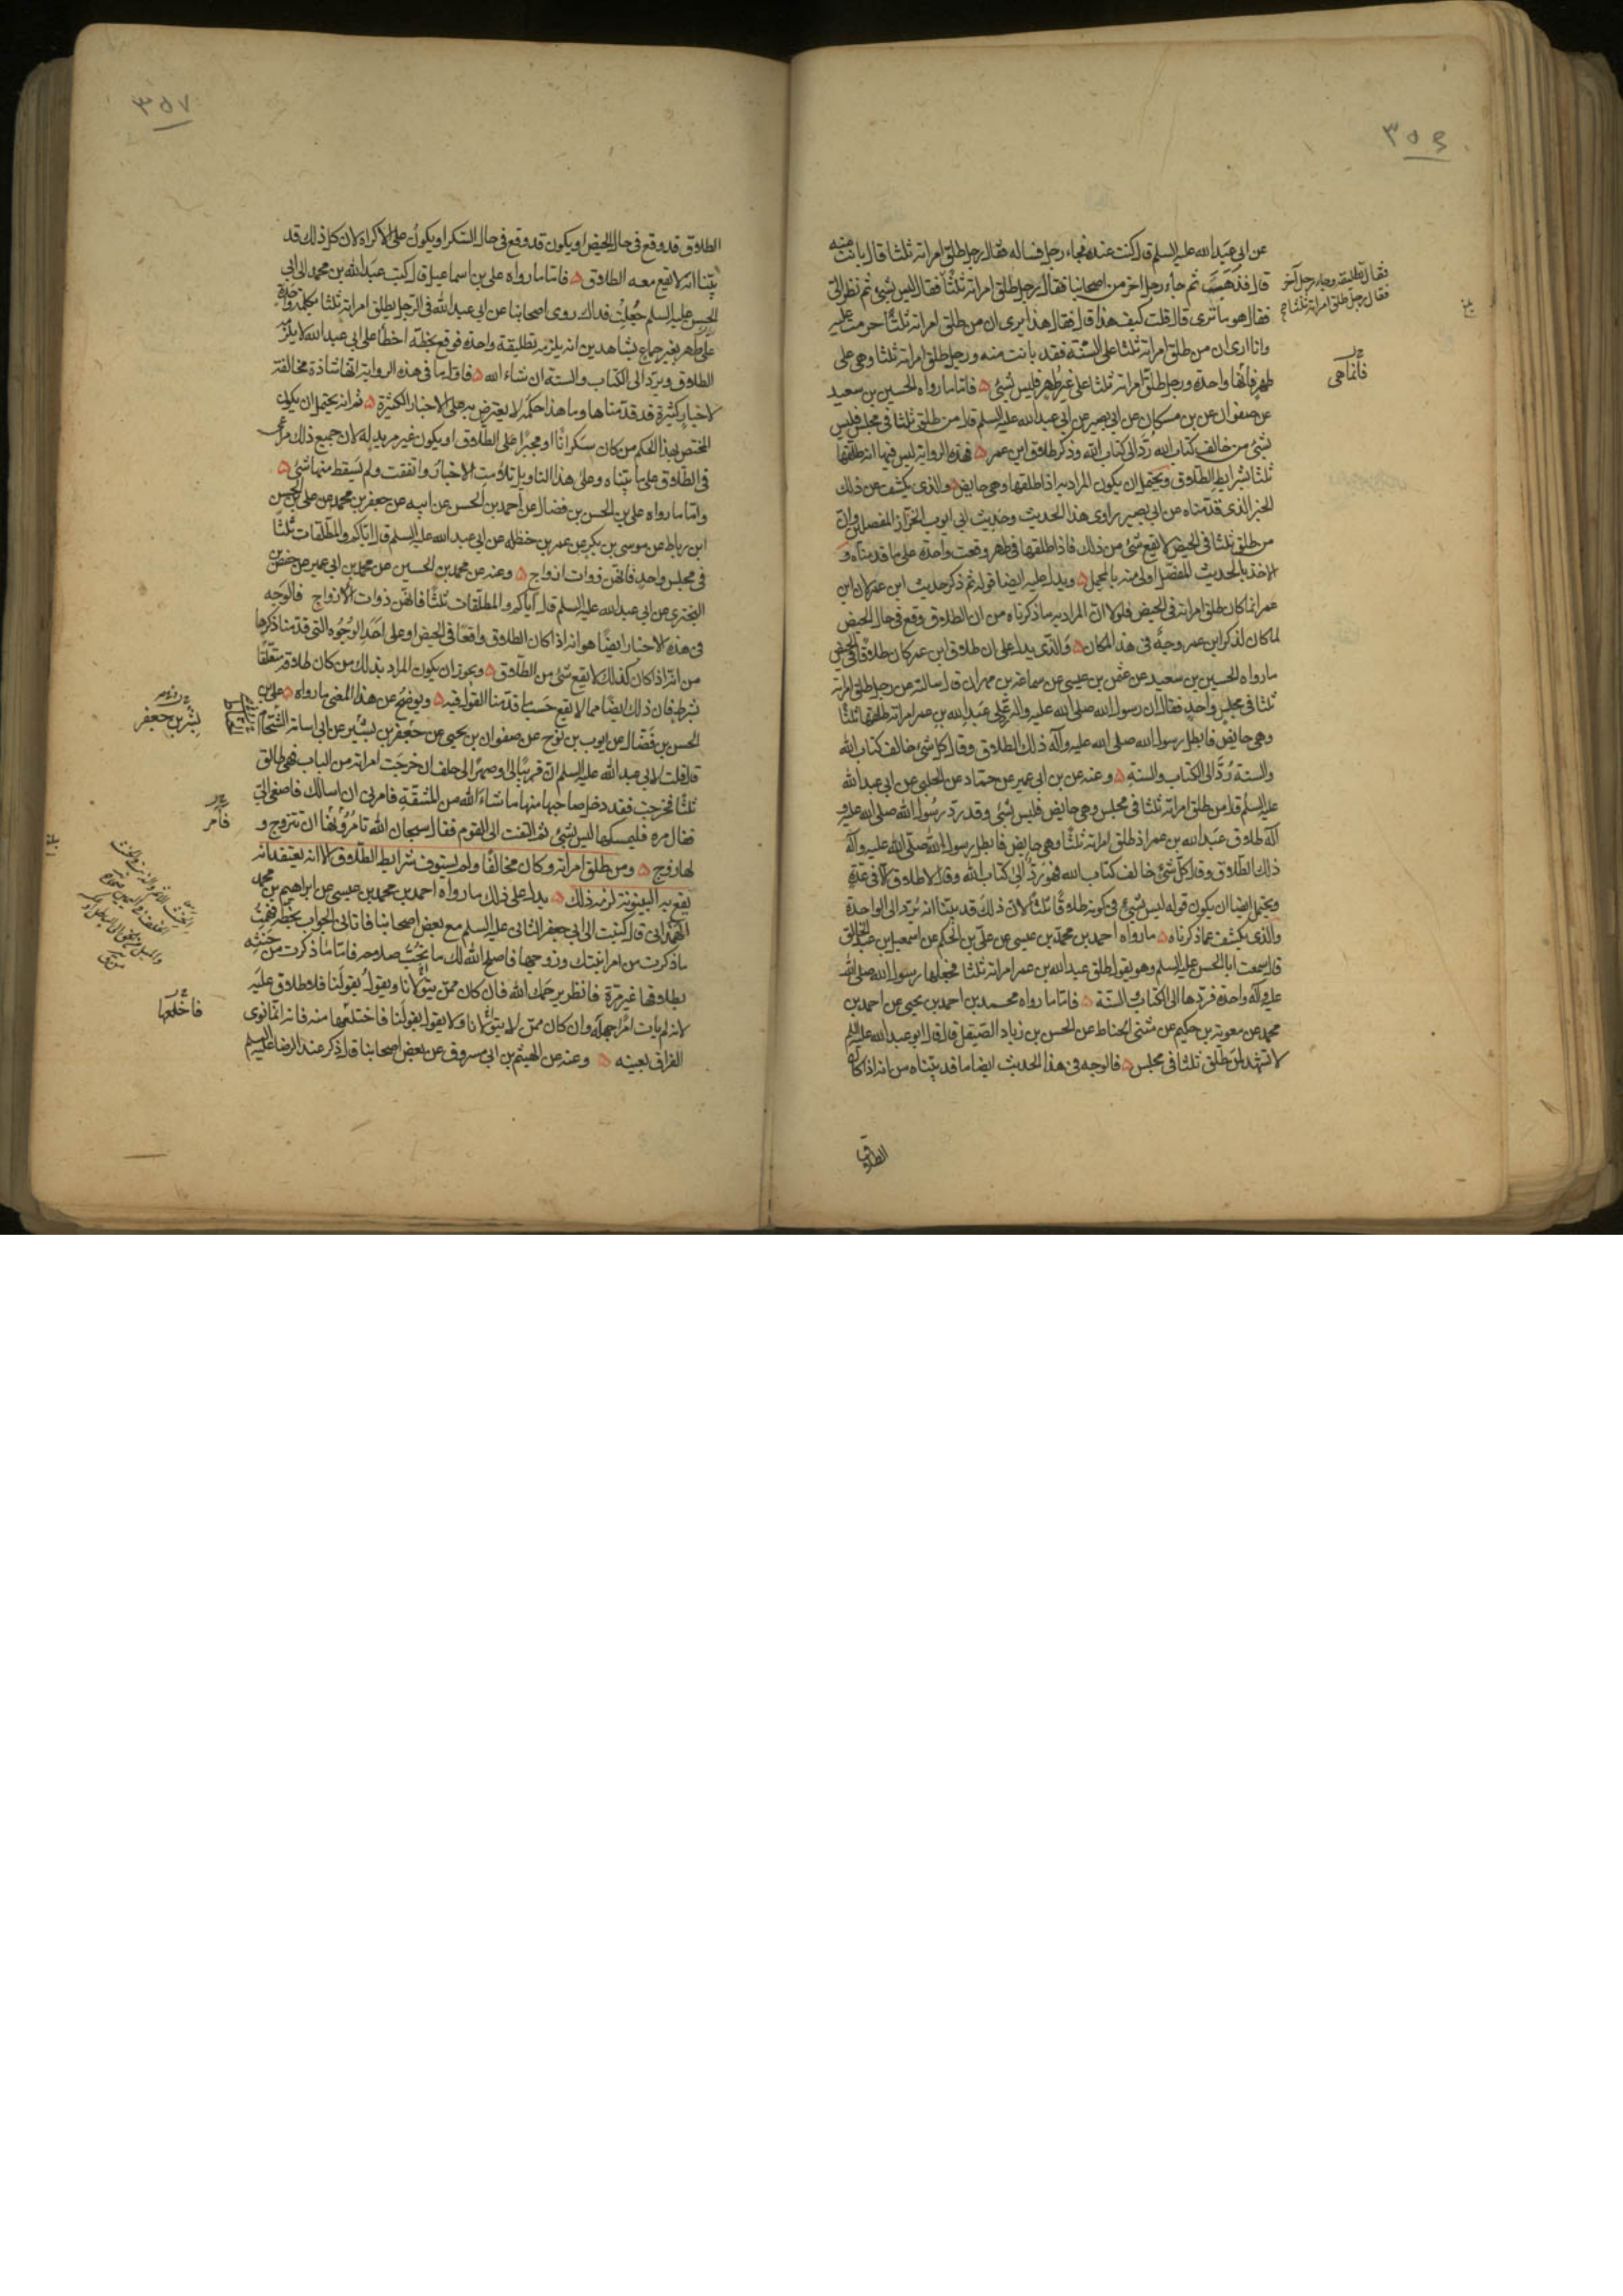 ٣٥٦
عن ابى عبد الله عليه السلم قال كنت عنده فجاء رجل فساله فقال رجل طلق امراته ثلثا قال بانت منه
قال فذهب ثم جاء رجل اخر من اصحابنا فقال رجل طلق امراته ثلثا فقال ليس بشئ ثم نظر الى
فقال هو ما ترى قال قلت كيف هذا قال فقال هذا يرى ان من طلق امراته ثلثا حرمت عليه
وانا ارى ان من طلق امراته ثلثا على السنة فقد بانت منه ورجل طلق امراته ثلثا وهى على
طهر فانها واحدة ورجل طلق امراته ثلثا على غير طهر فليس بشئ ۵ فاما ما رواه الحسين بن سعيد
عن صفوان عن بن مسكان عن ابى بصير عن ابى عبد الله عليه السلم قال من طلق ثلثا فى مجلس فليس
بشئ من خالف كتاب الله رد الى كتاب الله وذكر طلاق ابن عمر ۵ فهذه الرواية ليس فيها انه طلقها
ثلثا بشرايط الطلاق ويحتمل ان يكون المراد به اذا طلقها وهى حايض ۵ والذى يكشف عن ذلك
الخبر الذى قدمناه عن ابى بصير راوى هذا الحديث وحديث ابى ايوب الخزاز المفصل بين وان
من طلق ثلثا فى الحيض لا يقع شئ من ذلك فاذا طلقها فى طهر وقعت واحدة على ما قدمناه و
الاخذ بالحديث المفصل اولى منه بالمجمل ۵ ويدل عليه ايضا قوله ثم ذكر حديث ابن عمر لان ابن
عمر انما كان طلق امراته فى الحيض فلولا ان المراد به ما ذكرناه من ان الطلاق وقع فى حال الحيض
لما كان لذكر ابن عمر وجه فى هذا المكان ۵ والذى يدل على ان طلاق ابن عمر كان طلاقا فى الحيض
ما رواه الحسين بن سعيد عن عثمن بن عيسى عن سماعة بن مهران قال سالته عن رجل طلق امراته
ثلثا فى مجلس واحد فقال ان رسول الله صلى الله عليه واله رد على عبد الله بن عمر امراته طلقها ثلثا
وهى حايض فابطل رسول الله صلى الله عليه وآله ذلك الطلاق وقال كل شئ خالف كتاب الله
والسنة رد الى الكتاب والسنة ۵ وعنه عن بن ابى عمير عن حماد عن الحلبى عن ابى عبد الله
عليه السلم قال من طلق امراته ثلثا فى مجلس وهى حايض فليس بشئ وقد رد رسول الله صلى الله عليه و
آله طلاق عبد الله بن عمر اذ طلق امراته ثلثا وهى حايض فابطل رسول الله صلى الله عليه وآله
ذلك الطلاق وقال كل شئ خالف كتاب الله فهو رد الى كتاب الله وقال لا طلاق الا فى عدة
ويحتمل ايضا ان يكون قوله ليس بشئ فى كونه طلاقا ثلثا لان ذلك قد بينا انه يرد الى الواحدة
والذى يكشف عما ذكرناه ۵ ما رواه احمد بن محمد بن عيسى عن على بن الحكم عن اسمعيل بن عبد الخالق
قال سمعت ابا الحسن عليه السلم وهو يقول طلق عبد الله بن عمر امراته ثلثا فجعلها رسول الله صلى الله
عليه وآله واحدة فردها الى الكتاب والسنة ۵ فاما ما رواه محمد بن احمد بن يحيى عن احمد بن
محمد عن معوية بن حكيم عن مثنى الحناط عن الحسن بن زياد الصيقل قال قال ابو عبد الله عليه السلم
لا تشهد لمن طلق ثلثا فى مجلس ۵ فالوجه فى هذا الحديث ايضا ما قد بيناه من انه اذا كان
الطلاق
فقال تطليقة وجاء رجل آخر
فقال رجل طلق امراته ثلثا
فانما هى
٣٥٧
الطلاق قد وقع فى حال الحيض او يكون قد وقع فى حال السكر او يكون على الاكراه لان كل ذلك قد
بينا انه لا يقع معه الطلاق ۵ فاما ما رواه على بن اسماعيل قال كتب عبد الله بن محمد الى ابى
الحسن عليه السلم جعلت فداك روى اصحابنا عن ابى عبد الله فى الرجل يطلق امراته ثلثا بكلمة واحدة
على طهر بغير جماع بشاهدين انه يلزمه تطليقة واحدة فوقع بخطه اخطا على ابى عبد الله لا يلزمه
الطلاق ويرد الى الكتاب والسنة ان شاء الله ۵ فاول ما فى هذه الرواية انها شاذة مخالفة
لاخبار كثيرة قد قدمناها وما هذا حكمه لا يعترض به على الاخبار الكثيرة ۵ ثم انه يحتمل ان يكون
المختص بهذا الحكم من كان سكرانا او مجبرا على الطلاق او يكون غير مريد له لان جميع ذلك مراعى
فى الطلاق على ما بيناه وعلى هذا التاويل تلاومت الاخبار واتفقت ولم يسقط منها شئ ۵
واما ما رواه على بن الحسن بن فضال عن احمد بن الحسن عن ابيه عن جعفر بن محمد عن على بن الحسن
ابن رباط عن موسى بن بكر عن عمر بن حنظله عن ابى عبد الله عليه السلم قال اياكم والمطلقات ثلثا
فى مجلس واحد فانهن ذوات ازواج ۵ وعنه عن محمد بن الحسين عن محمد بن ابى عمير عن حفص بن
البخترى عن ابى عبد الله عليه السلم قال اياكم والمطلقات ثلثا فانهن ذوات الازواج فالوجه
فى هذه الاخبار ايضا هو انه اذا كان الطلاق واقعا فى الحيض او على احد الوجوه التى قدمنا ذكرها
من انه اذا كان كذلك لا يقع شئ من الطلاق ۵ ويجوز ان يكون المراد بذلك من كان طلاقه متعلقا
بشرط فان ذلك ايضا مما لا يقع حسب ما قدمنا القول فيه ۵ ويوضح عن هذا المعنى ما رواه ۵ على بن
الحسن بن فضال عن ايوب بن نوح عن صفوان بن يحيى عن جعفر بن بشير عن ابى اسامة الشحام
قال قلت لابى عبد الله عليه السلم ان قريبا لى او صهرا لى حلف ان خرجت امراته من الباب فهى طالق
ثلثا فخرجت فقد دخل صاحبها منها ما شاء الله من المشقة فامرنى ان اسالك فاصغى الى
فقال مره فليمسكها ليس بشئ ثم التفت الى القوم فقال سبحان الله تامرونها ان تتزوج و
لها زوج ۵ ومن طلق امراته وكان مخالفا ولم يستوف شرايط الطلاق الا انه يعتقد انه
يقع به البينونة لزمه ذلك ۵ يدل على ذلك ما رواه احمد بن محمد بن عيسى عن ابراهيم بن محمد
الهمدانى قال كتبت الى ابى جعفر الثانى عليه السلم مع بعض اصحابنا فاتانى الجواب بخطه فهمت
ما ذكرت من امر ابنتك وزوجها فاصلح الله لك ما تحب صلاحه فاما ما ذكرت من حنثه
بطلاقها غير مرة فانظر يرحمك الله فان كان ممن يتولانا ويقول بقولنا فلا طلاق عليه
لانه لم يات امرا جهله وان كان ممن لا يتولانا ولا يقول بقولنا فاختلعها منه فانه انما نوى
الفراق بعينه ۵ وعنه عن الهيثم بن ابى مسروق عن بعض اصحابنا قال ذكر عند الرضا عليه السلم
بشر بن جعفر
فآمر
فاخلعها